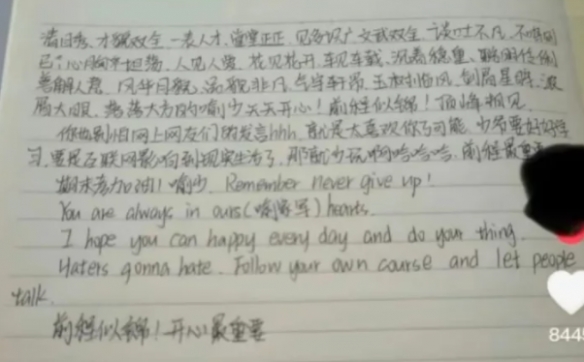 清日秀、才貌双全、一表人才、堂堂正正、见多识广、文武双全、谈吐不凡、不骄
心胸坦荡、人见人爱、花见花开、车见车载、沉着稳重、聪明伶俐
善解人意、风华月貌、品貌非凡、气宇轩昂、玉树临风、剑眉星眸、浓
眉大眼、落落大方的喻少天天开心！前程似锦！顶峰相见
你也别怕网上网友们的发言hhh，就是太喜欢你了可能，少爷要好好学
习，要是互联网影响到现实生活了，那就少玩啊哈哈哈，前程最重要
期末考加油！喻少，Remember never give up!
You are always in ours(喻家军) hearts.
I hope you can happy every day and do your thing.
Haters gonna hate. Follow your own course and let people
talk.
前程似锦！开心最重要
8445